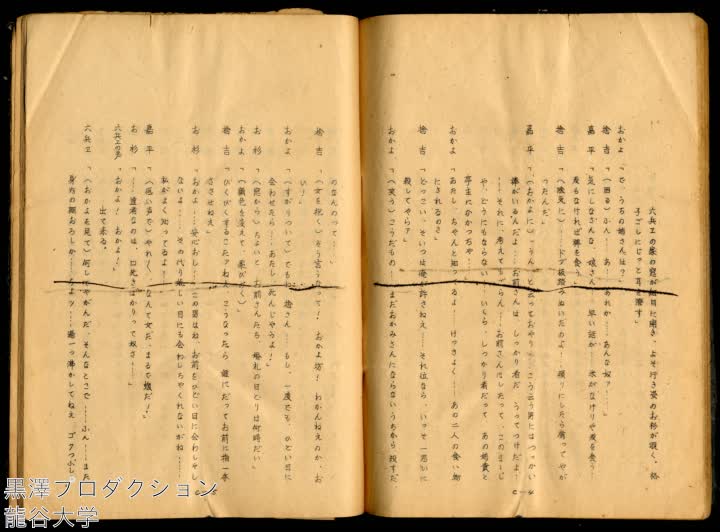 六兵ヱの家の窓が細目に開き、よそ行き姿のお杉が覗く、格
子ごしにじっと耳を澄す」
おかよ「で、うちの姉さんは？」
捨吉「(困る)ふん……あ！……あれか……あんな奴？……」
嘉平「気にしなさんな、娘さん……早い話が……米がなけりゃ麦を食う……
麦もなければ稗を食う……」
捨吉「(陰気に)……ドブ板踏みぬいたのよ！……
ったんだ」
嘉平「(おかよに)……こう云う男にはつっかい
棒がいるんだよ……お前さんは、しっかり者だ
……それに、考えてもごらん……お前さんにしたって、このまゝじ
ゃ、どうにもならない……いくら、しっかり者だって
亭主にひかっちゃ」
おかよ「あたし、ちゃんと知ってるよ……けっきょく……あの二人の食い物
にされるのさ」
捨吉「どっこい、そいつは俺が許さねえ……それ位なら、いっそ一思いに
殺してやらァ」
おかよ「(笑う)こうだもの……まだおかみさんにならないうちから殺すだ
のなんのって……」
捨吉「(女を抱く)そう言うなって！おかよ坊！わかんねえのか、お
い！」
おかよ「(すがりついて)でもね、捨さん……もし、一度でも、ひどい目に
会わせたら……あたし、死んじゃうよ！」
お杉「(窓から)ちょいと、お前さんたち、婚礼の日どりは何時だい」
おかよ「(顔色を変えて、
捨吉「びくびくするこたァねえ、こうなったら、誰にだってお前に指一本
ささせねえ」
お杉「おかよ……安心おし……この男はね、お前をひどい目に会わしゃし
ないよ……その代り嬉しい目にも会わしちゃくれないがね……
私がよく知ってるよ」
嘉平「(低い声で)やれ〳〵、なんて女だ、まるで蝮だ！」
お杉「……達者なのは、口先きばかりって奴さ……」
六兵ヱの声「おかよ！おかよ！」
出て来る。
六兵ヱ「(おかよを見て)何してやがんだ、そんなとこで……ふん！……また
身内の棚おろしか……
黒澤プロダクション
龍谷大学